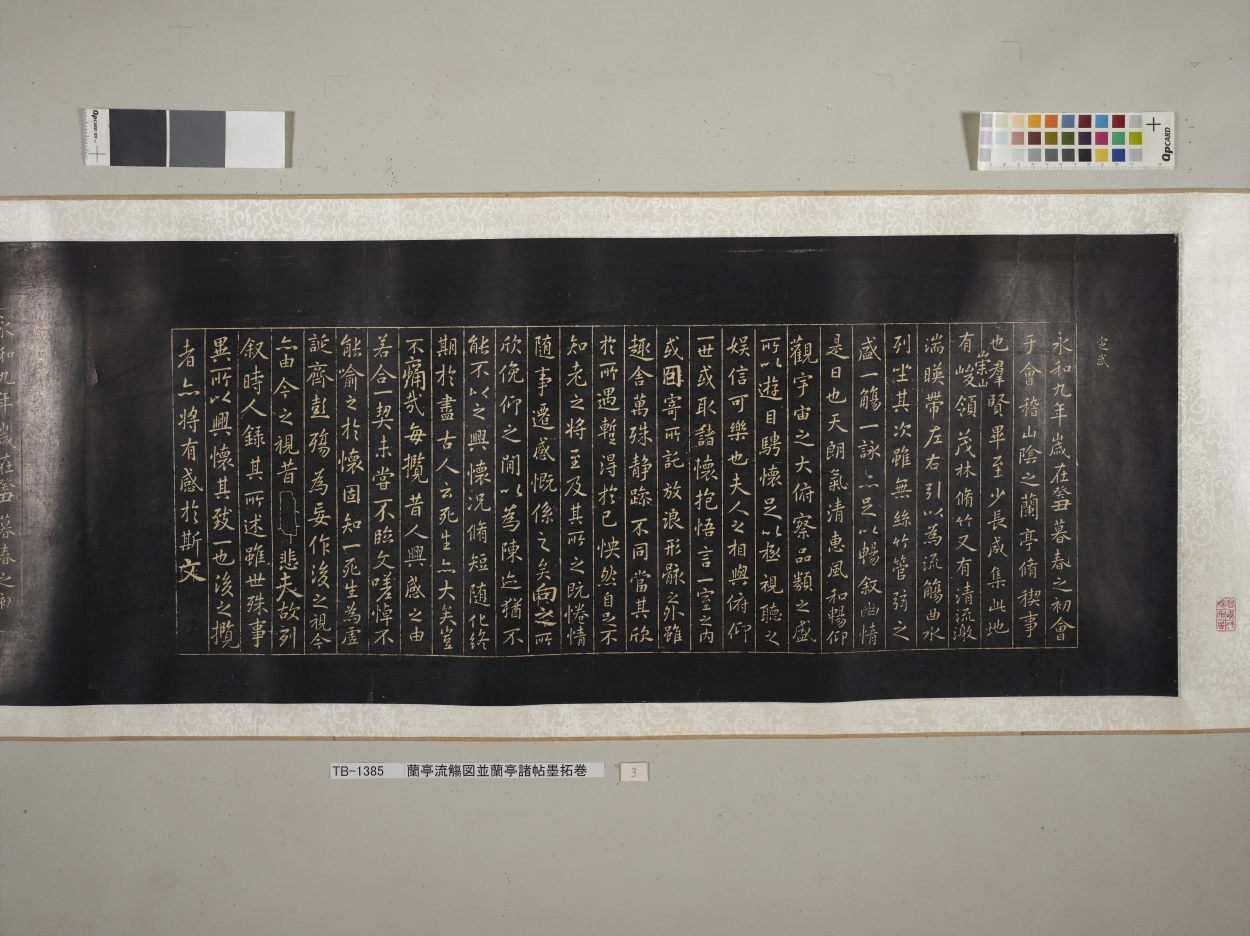 定武
永和九年歳在癸丑暮春之初會
于會稽山陰之蘭亭脩稧事
也羣賢畢至少長咸集此地
有崇山峻領茂林脩竹又有清流激
湍暎帶左右引以為流觴曲水
列坐其次雖無絲竹管弦之
盛一觴一詠亦足以暢叙幽情
是日也天朗氣清惠風和暢仰
觀宇宙之大俯察品類之盛
所以遊目騁懷足以極視聽之
娛信可樂也夫人之相與俯仰
一世或取諸懷抱悟言一室之內
或因寄所託放浪形骸之外雖
趣舍萬殊静踪不同當其欣
於所遇暫得於己怏然自足不
知老之將至及其所之既惓情
随事遷感慨係之矣向之所
欣俛仰之閒以為陳迹猶不
能不以之興懷況脩短随化終
期於盡古人云死生亦大矣豈
不痛㢤每攬昔人興感之由
若合一契未甞不臨文嗟悼不
能喻之於懷固知一死生為虛
誕齊彭殤為妄作後之視今
亦由今之視昔悲夫故列
叙時人錄其所述雖世殊事
異所以興懷其致一也後之攬
者亦將有感於斯文
永和九年歳在癸丑暮春之初
TB-1385 蘭亭流觴図並蘭亭諸帖墨拓巻
3
QPCARD
QPCARD